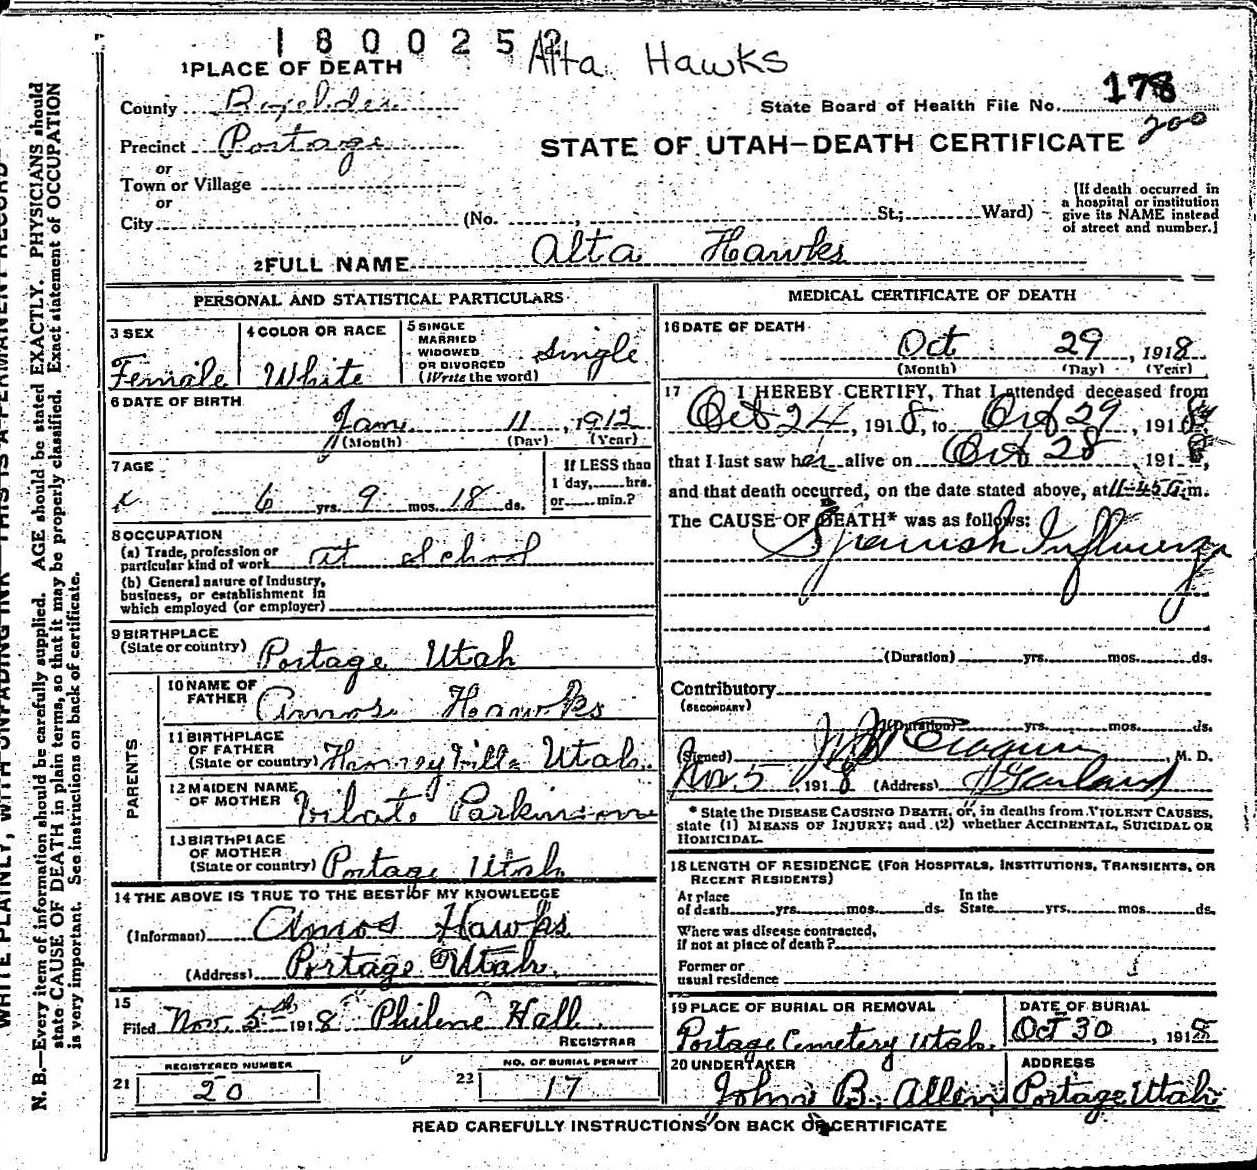 1800252
Alta Hawks
1 PLACE OF DEATH
County Boxelder
State Board of Health File No. 178
200
Precinct Portage
STATE OF UTAH—DEATH CERTIFICATE
or
Town or Village
or
City (No. , St; Ward)
[If death occurred in
a hospital or institution
give its NAME instead
of street and number.]
2 FULL NAME Alta Hawks
PERSONAL AND STATISTICAL PARTICULARS
3 SEX
Female
4 COLOR OR RACE
White
5 SINGLE
MARRIED
WIDOWED
OR DIVORCED
(Write the word)
Single
6 DATE OF BIRTH
Jan 11, 1912
(Month) (Day) (Year)
7 AGE
6 yrs. 9 mos. 18 ds.
If LESS than
1 day, hrs.
or min.?
8 OCCUPATION
(a) Trade, profession or
particular kind of work at School
(b) General nature of Industry,
business, or establishment in
which employed (or employer)
9 BIRTHPLACE
(State or country) Portage Utah
PARENTS
10 NAME OF
FATHER Amos Hawks
11 BIRTHPLACE
OF FATHER
(State or country) Utah
12 MAIDEN NAME
OF MOTHER Parkinson
13 BIRTHPLACE
OF MOTHER
(State or country) Portage Utah
14 THE ABOVE IS TRUE TO THE BEST OF MY KNOWLEDGE
(Informant) Amos Hawks
(Address) Portage Utah
15
Filed Nov. 5th 1918 Philene Hall
REGISTRAR
REGISTERED NUMBER
21 20
NO. OF BURIAL PERMIT
22 17
MEDICAL CERTIFICATE OF DEATH
16 DATE OF DEATH
Oct 29, 1918
(Month) (Day) (Year)
17 I HEREBY CERTIFY, That I attended deceased from
Oct 24, 1918, to Oct 29, 1918
that I last saw her alive on Oct 28, 1918,
and that death occurred, on the date stated above, at 11-45 m.
The CAUSE OF DEATH* was as follows:
Spanish Influenza
(Duration) yrs. mos. ds.
Contributory
(SECONDARY)
(Duration) yrs. mos. ds.
(Signed) M. D.
Nov 5 1918 (Address) Garland
* State the DISEASE CAUSING DEATH, or, in deaths from VIOLENT CAUSES,
state (1) MEANS OF INJURY; and (2) whether ACCIDENTAL, SUICIDAL OR
HOMICIDAL.
18 LENGTH OF RESIDENCE (FOR HOSPITALS, INSTITUTIONS, TRANSIENTS, OR
RECENT RESIDENTS)
At place
of death yrs. mos. ds.
In the
State yrs. mos. ds.
Where was disease contracted,
if not at place of death?
Former or
usual residence
19 PLACE OF BURIAL OR REMOVAL
Portage Cemetery Utah.
DATE OF BURIAL
Oct 30, 1918
20 UNDERTAKER
John B. Allen
ADDRESS
Portage Utah
READ CAREFULLY INSTRUCTIONS ON BACK OF CERTIFICATE
WRITE PLAINLY, WITH UNFADING INK—THIS IS A PERMANENT RECORD
N. B.—Every item of information should be carefully supplied. AGE should be stated EXACTLY. PHYSICIANS should
state CAUSE OF DEATH in plain terms, so that it may be properly classified. Exact statement of OCCUPATION
is very important. See instructions on back of certificate.